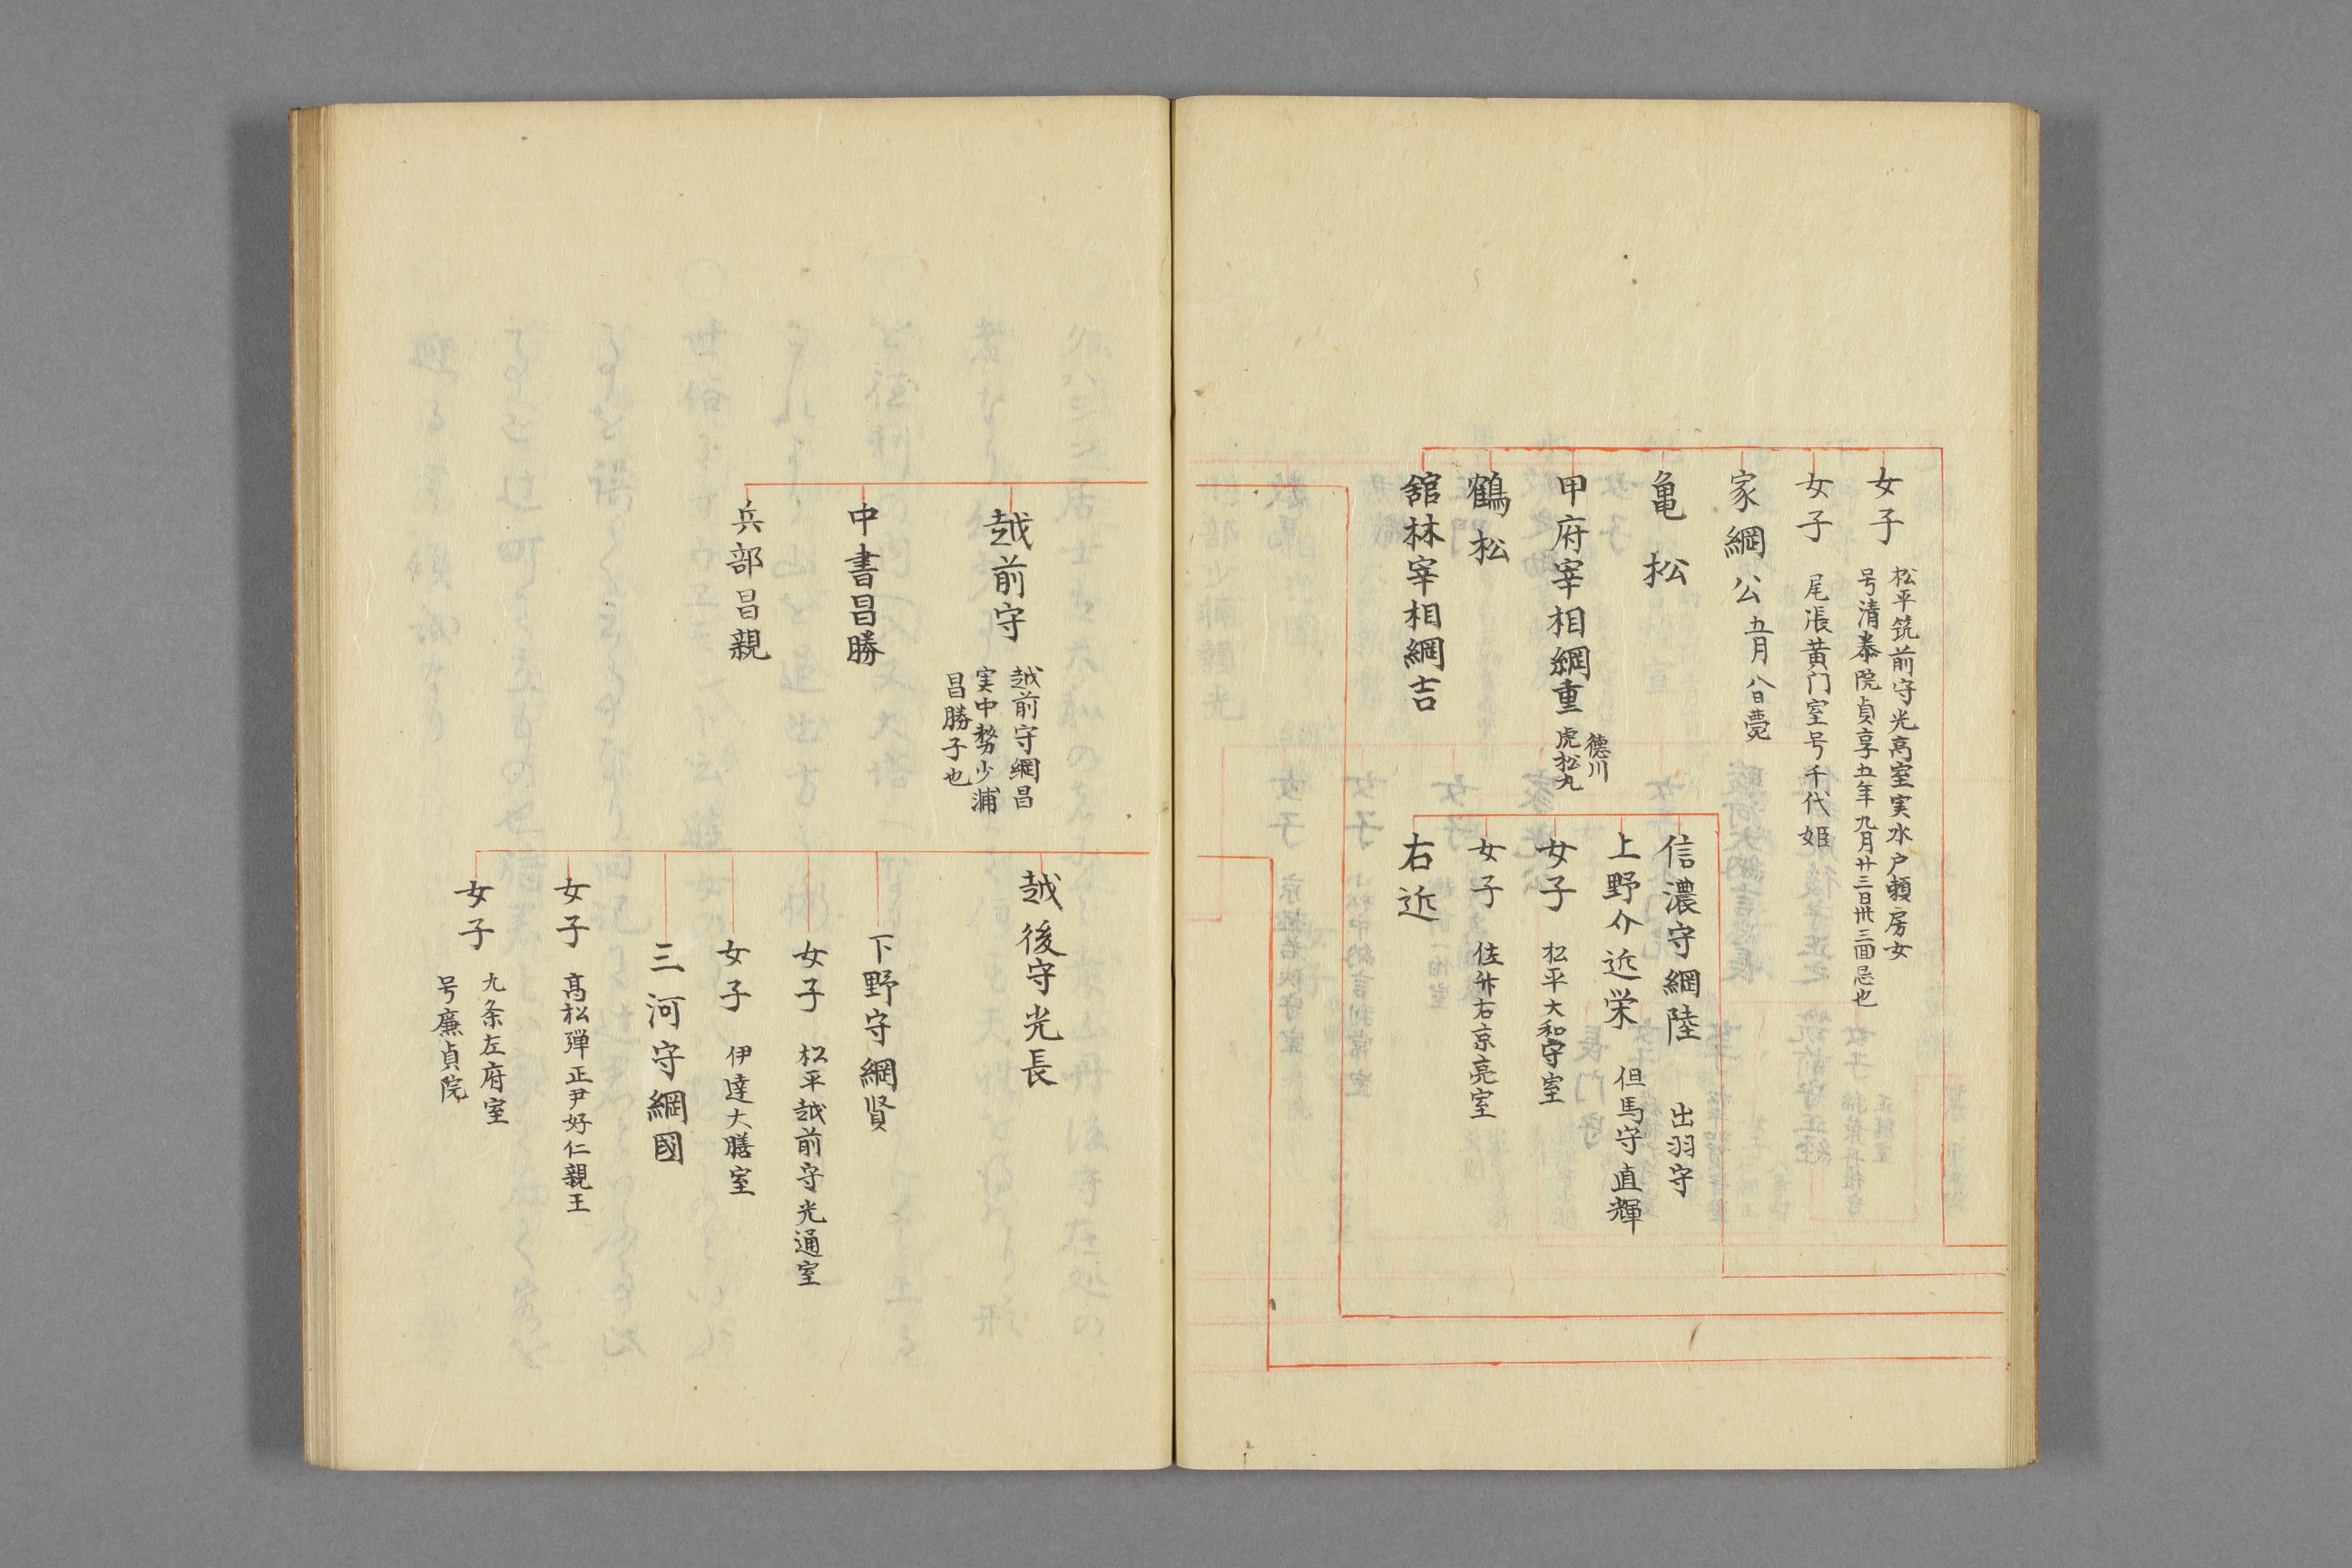 女子
松平筑前守光高室実水户頼房女
号清泰院貞享五年九月廿三日卅三回忌也
女子
尾張黄门室号千代姫
家綱公
五月八日薨
亀松
甲府宰相綱重
德川
虎松丸
鶴松
舘林宰相綱吉
信濃守綱陸 出羽守
上野介近栄 但馬守直輝
女子 松平大和守室
女子 佐竹右京亮室
右近
越前守
越前守綱昌
実中務少浦
昌勝子也
中書昌勝
兵部昌親
越後守光長
下野守綱賢
女子 松平越前守光通室
女子 伊達大膳室
三河守綱國
女子 髙松弾正尹好仁親王
女子
九条左府室
号廉貞院